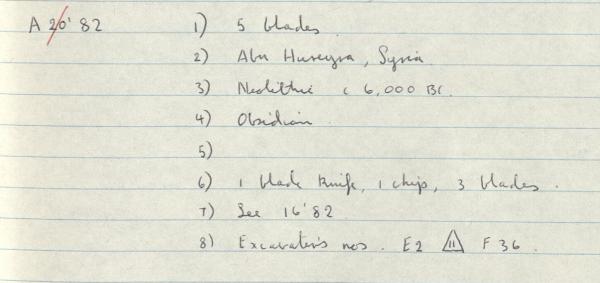 A 20' 82 1) 5 blades.
2) Abu Hureyra, Syria
3) Neolithic c 6,000 BC.
4) Obsidian
5)
6) 1 blade knife, 1 chip, 3 blades.
7) See 16'82
8) Excavater's nos. E2 11 F36.